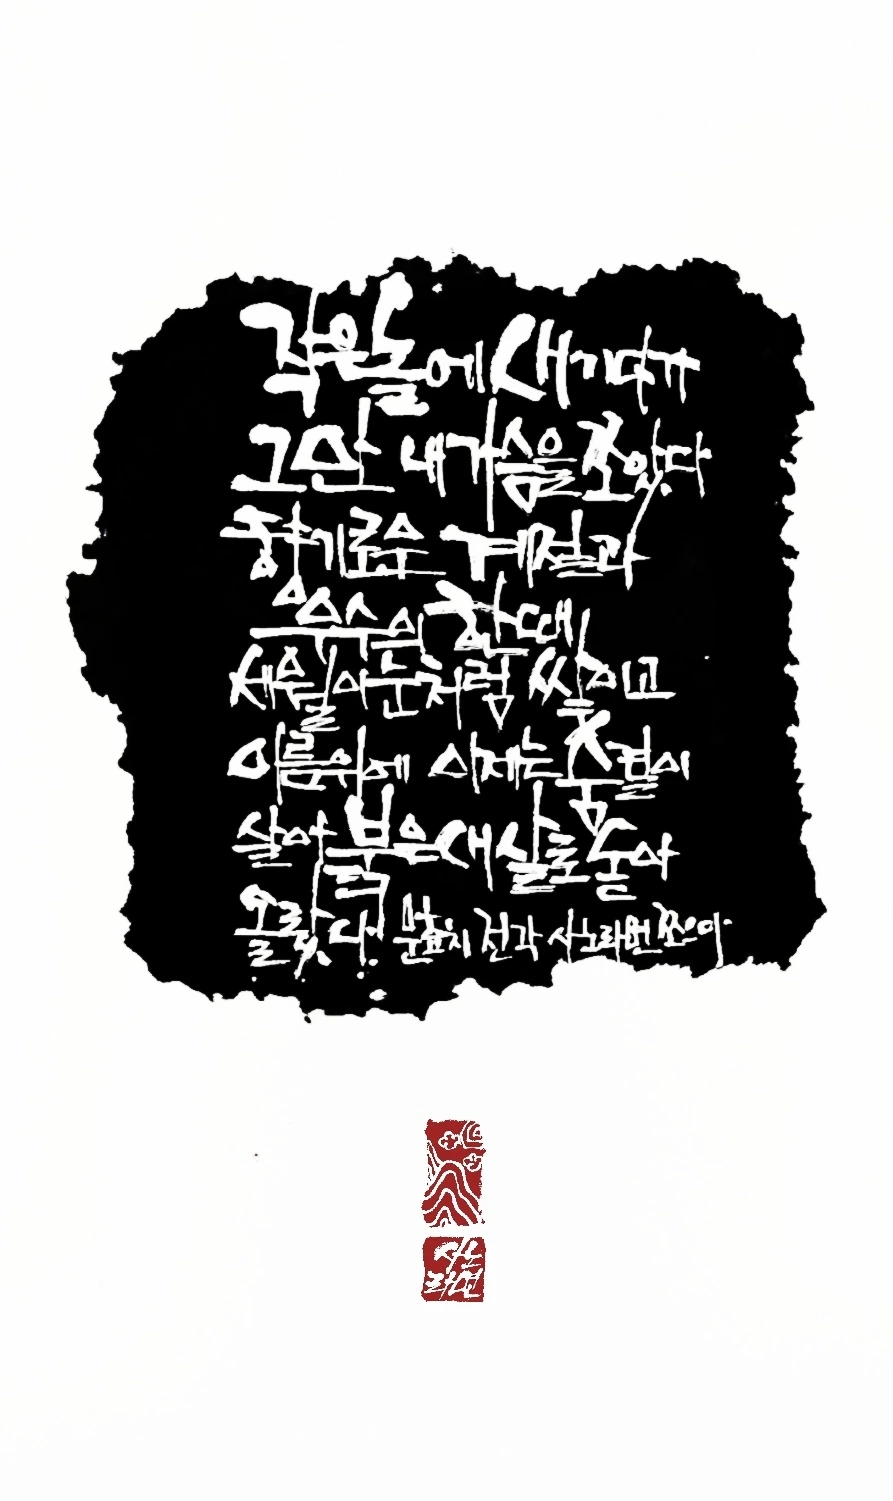 작은 돌에 새기다가
그만 내 가슴을 쪼았다
향기로운 계절과
우수의 한때
세월이 눈처럼 쌓이고
이름 위에 이제는 숨결이
살아 붉은 새 살로 돋아
올랐다. 문효치 전각 산노래번 쪼으다